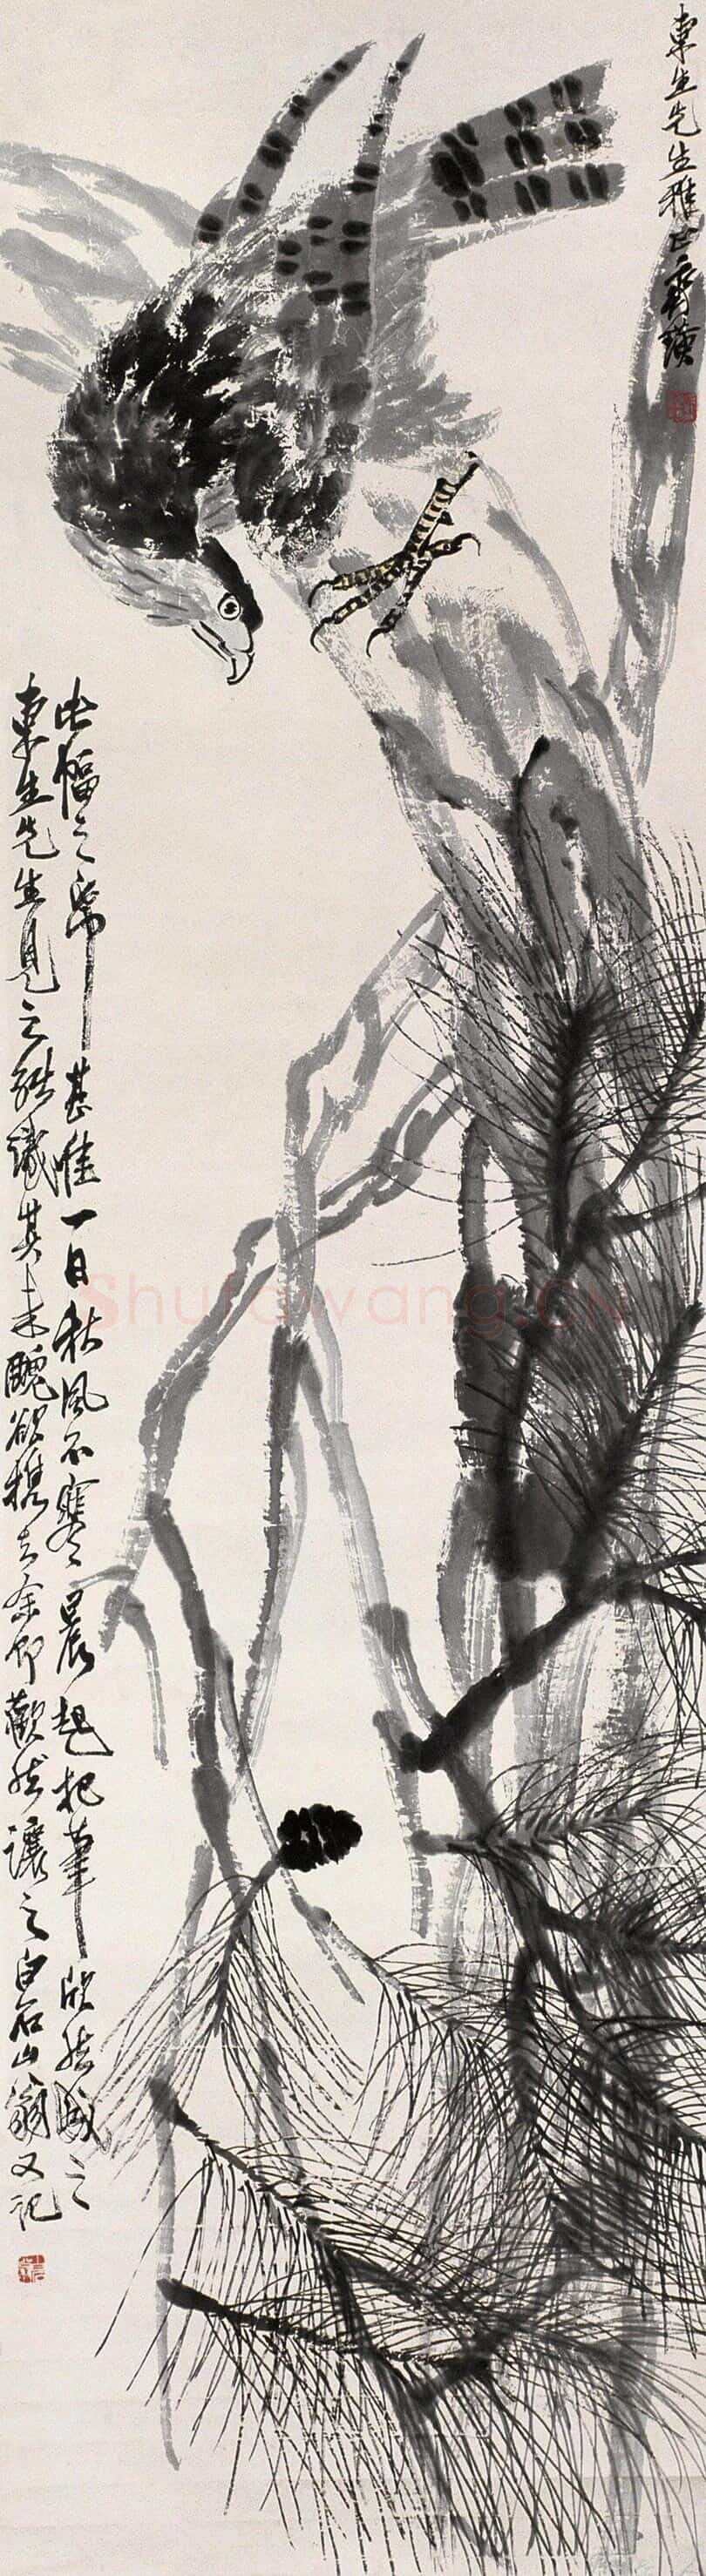 東生先生雅正齊璜
此幅之帋甚佳一日秋風不寒晨起把筆欣然成之
東生先生見之能識其未醜欲携去余即歡然讓之白石山翁又記
Shufawang.CN